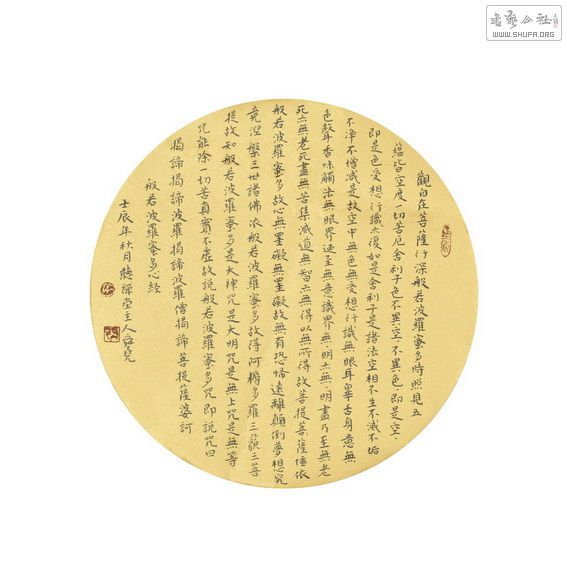 觀自在菩薩行深般若波羅蜜多時照見五
蘊皆空度一切苦厄舍利子色不異空空不異色色即是空空
即是色受想行識亦復如是舍利子是諸法空相不生不滅不垢
不淨不增減是故空中無色無受想行識無眼耳鼻舌身意無
色聲香味觸法無眼界迺至無意識界無無明亦無無明盡乃至無老
死亦無老死盡無苦集滅道無智亦無得以無所得故菩提薩埵依
般若波羅蜜多故心無罣礙無罣礙故無有恐怖遠離顛倒夢想究
竟涅槃三世諸佛依般若波羅蜜多故得阿耨多羅三藐三菩
提故知般若波羅蜜多是大神咒是大明咒是無上咒是無等
咒能除一切苦真實不虛故說般若波羅蜜多咒即說咒曰
揭諦揭諦波羅揭諦波羅僧揭諦菩提薩婆訶
般若波羅蜜多心經
壬辰年秋月聽禪堂主人
WWW.SHUFA.ORG